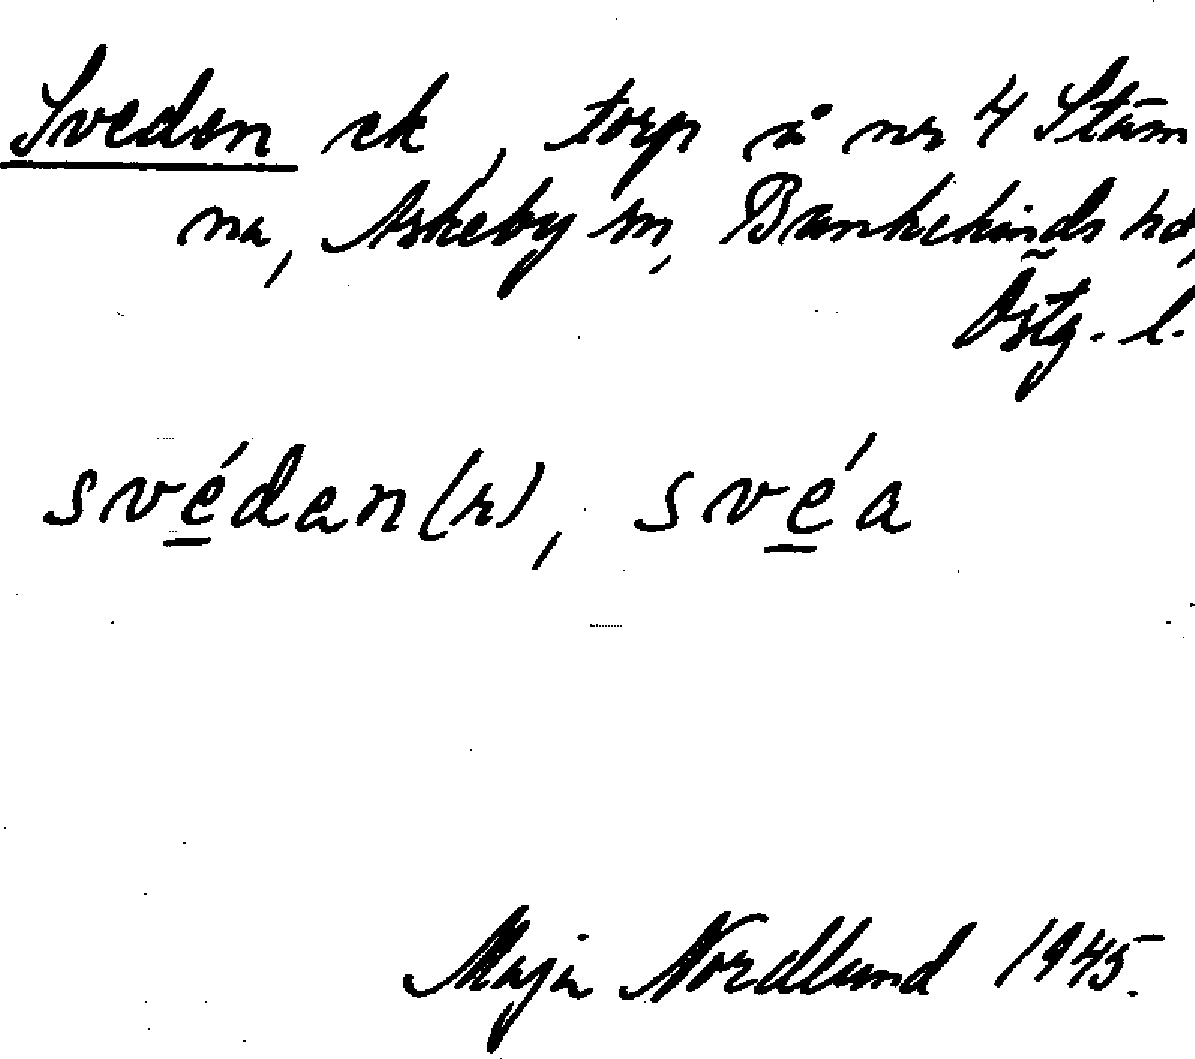 Sveden ek, torp å nr 4 Stäm
na, Askeby sn, Bankekinds hd,
Östg. l.
svédan(n), svéa
Maja Nordlund 1945.